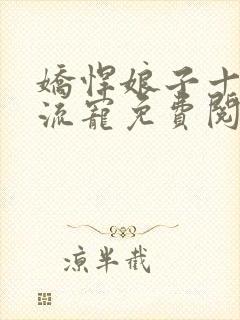 嬌悍娘子十
流寵免費閱
凉半截